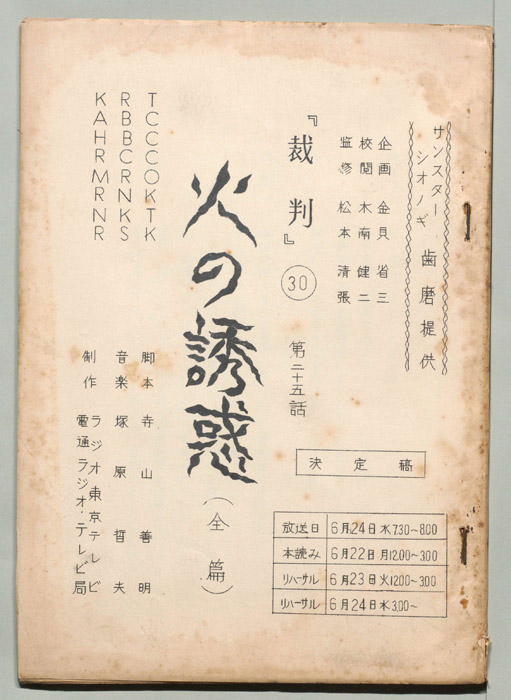 サンスター
シオノギ
歯磨提供
企画 金貝省三
校閲 木南健二
監修 松本清張
『裁判』
㉚
第二十五話
決定稿
放送日 6月24日水7.30~8.00
本読み 6月22日月12.00~3.00
リハーサル 6月23日火12.00~3.00
リハーサル 6月24日水3.00~
火の誘惑
(全篇)
TCCCOTK
RBBCRNKS
KAHRMRNR
脚本 寺山善明
音楽 塚原哲夫
制作 ラジオ東京テレビ
電通ラジオ・テレビ局